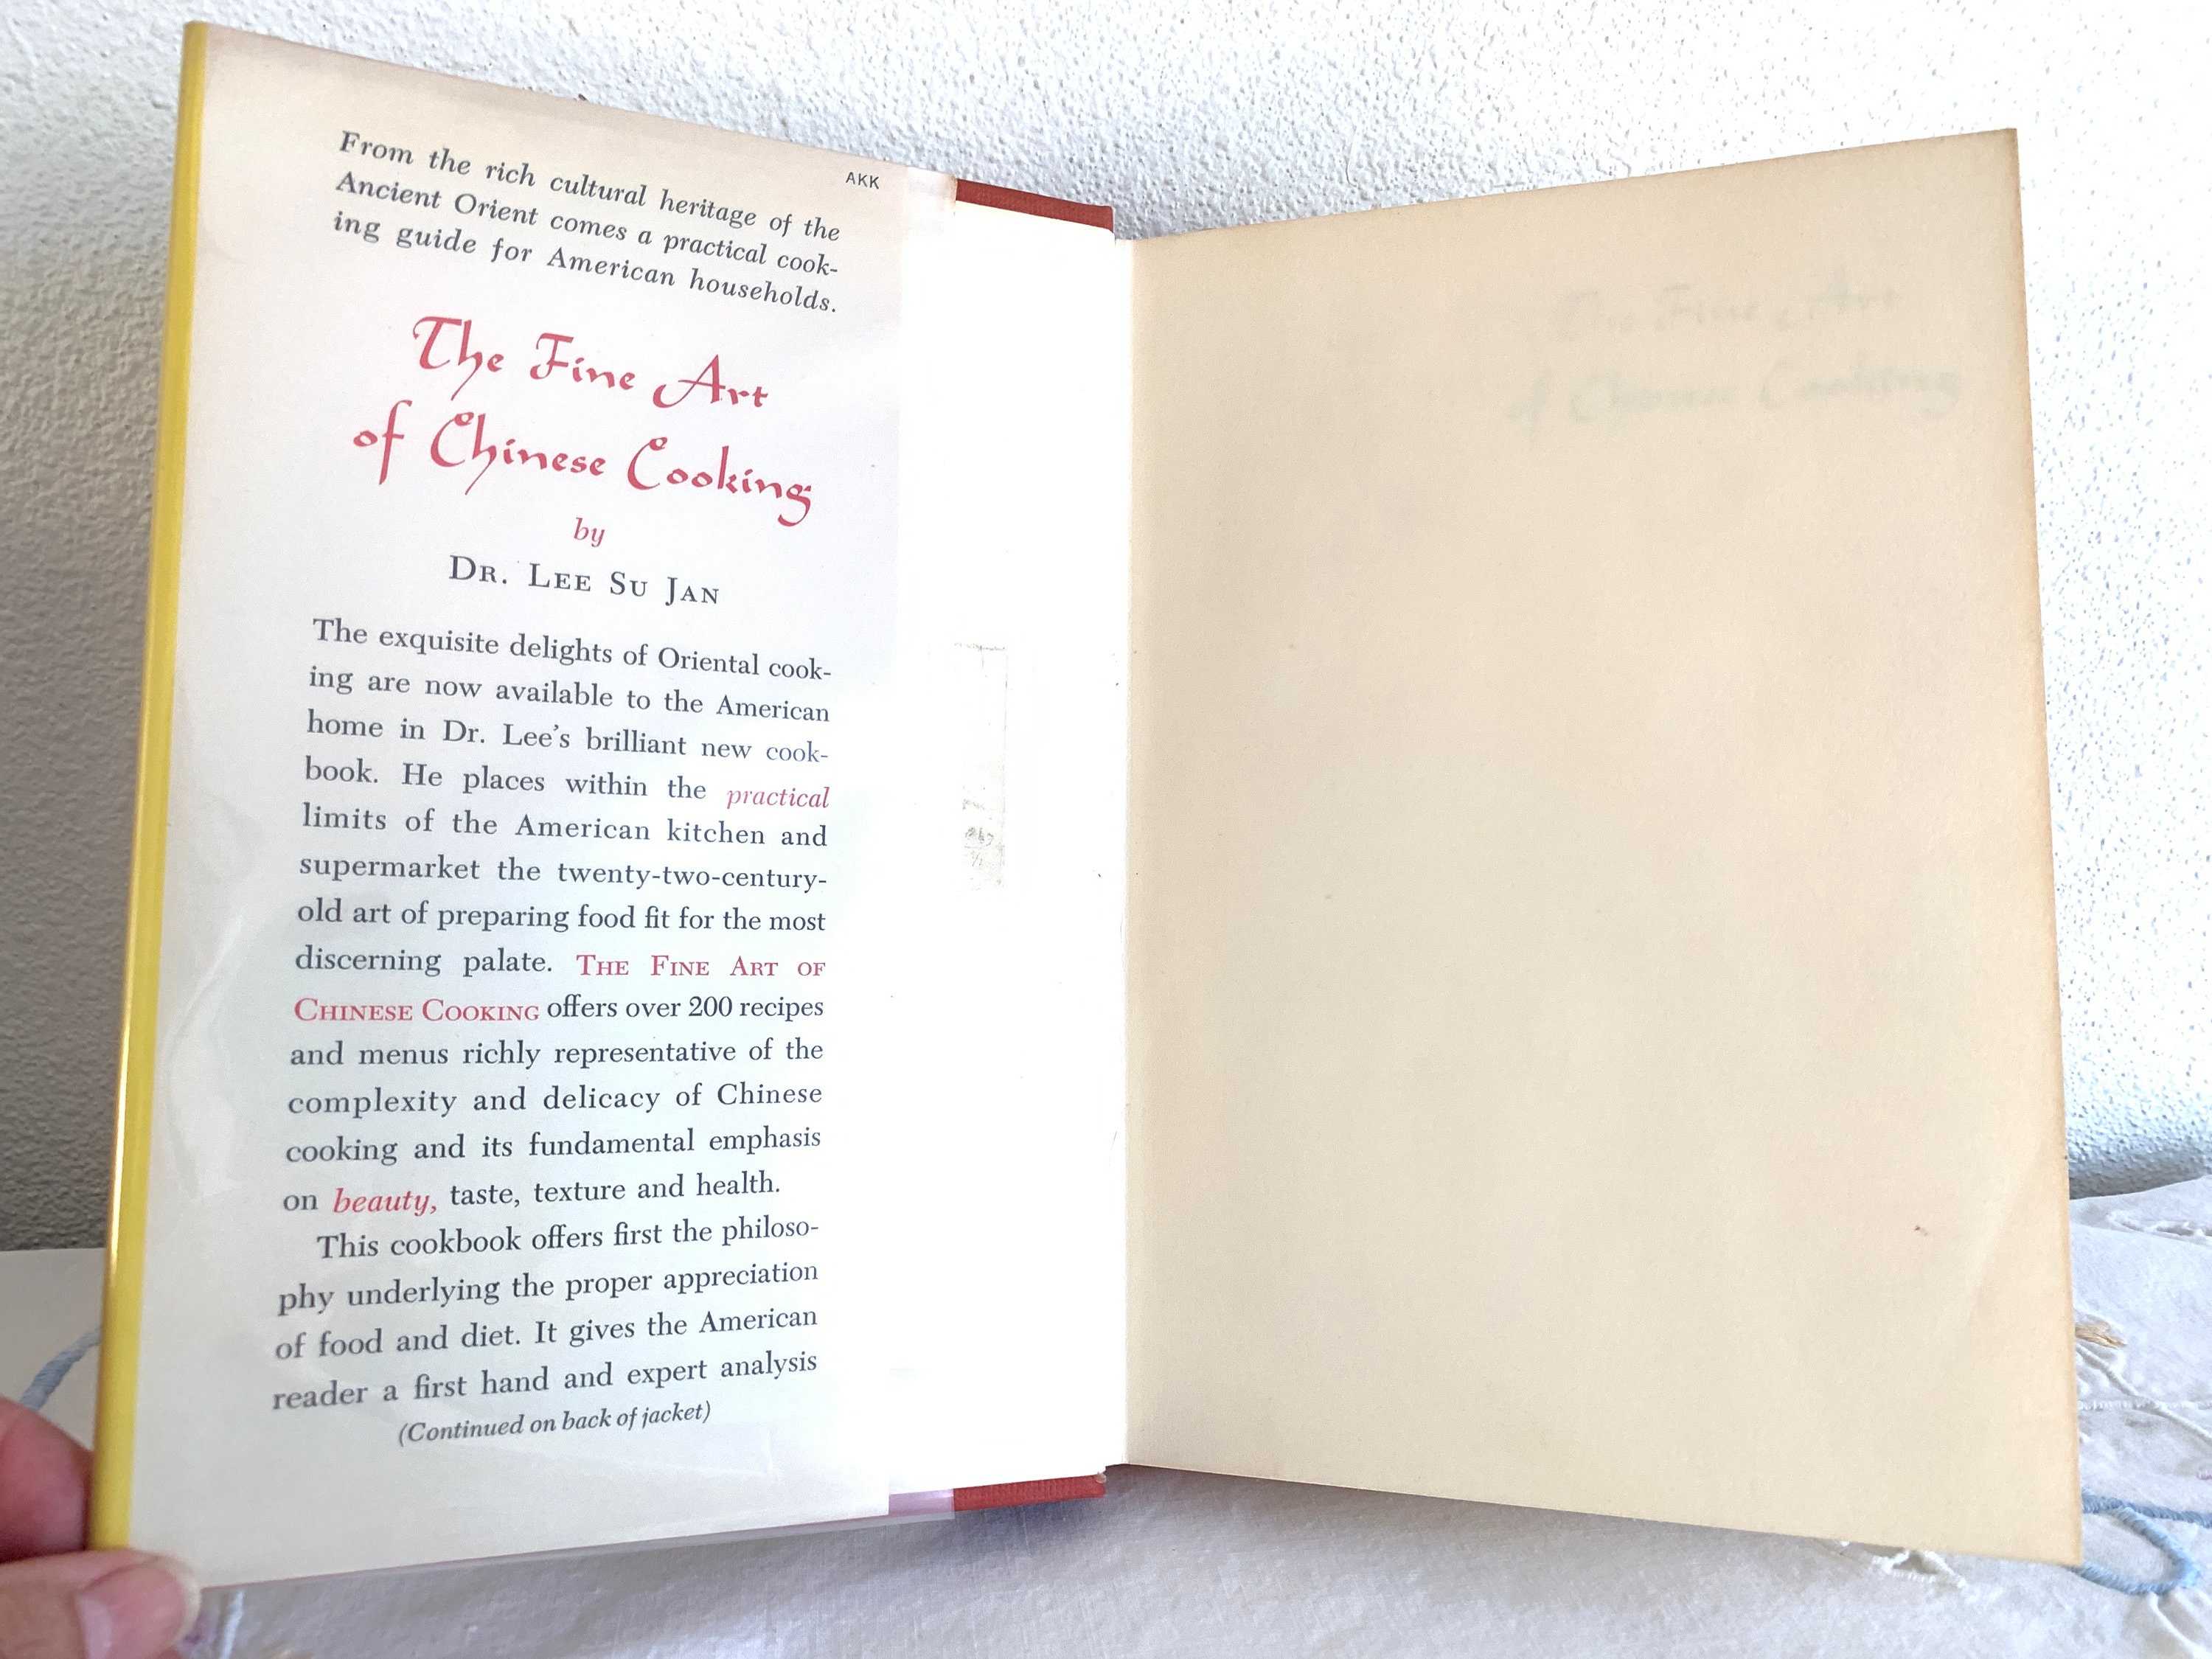 AKK
From the rich cultural heritage of the
Ancient Orient comes a practical cook-
ing guide for American households.
The Fine Art
of Chinese Cooking
by
DR. LEE SU JAN
The exquisite delights of Oriental cook-
ing are now available to the American
home in Dr. Lee's brilliant new cook-
book. He places within the practical
limits of the American kitchen and
supermarket the twenty-two-century-
old art of preparing food fit for the most
discerning palate. THE FINE ART OF
CHINESE COOKING offers over 200 recipes
and menus richly representative of the
complexity and delicacy of Chinese
cooking and its fundamental emphasis
on beauty, taste, texture and health.
This cookbook offers first the philoso-
phy underlying the proper appreciation
of food and diet. It gives the American
reader a first hand and expert analysis
(Continued on back of jacket)
The Fine Art
of Chinese Cooking